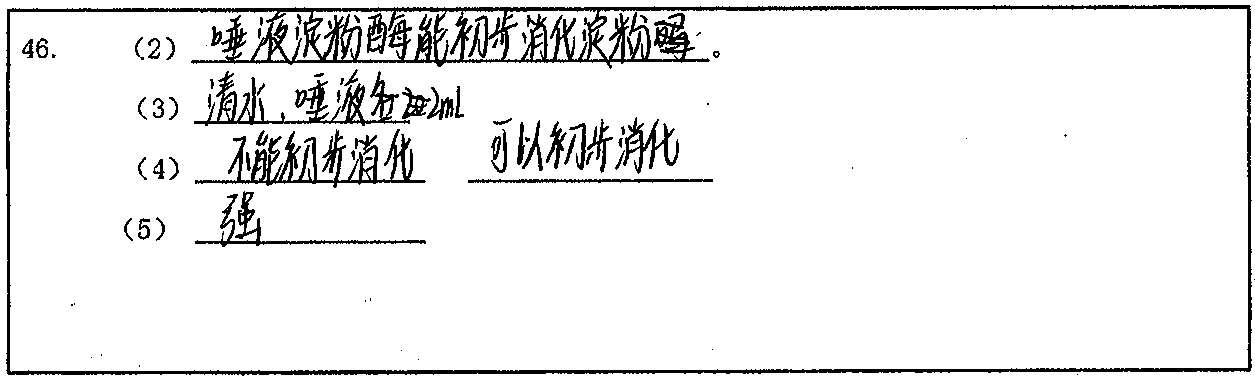 46. (2) 唾液淀粉酶能初步消化淀粉。
(3) 清水、唾液各2mL
(4) 不能初步消化 可以初步消化
(5) 强